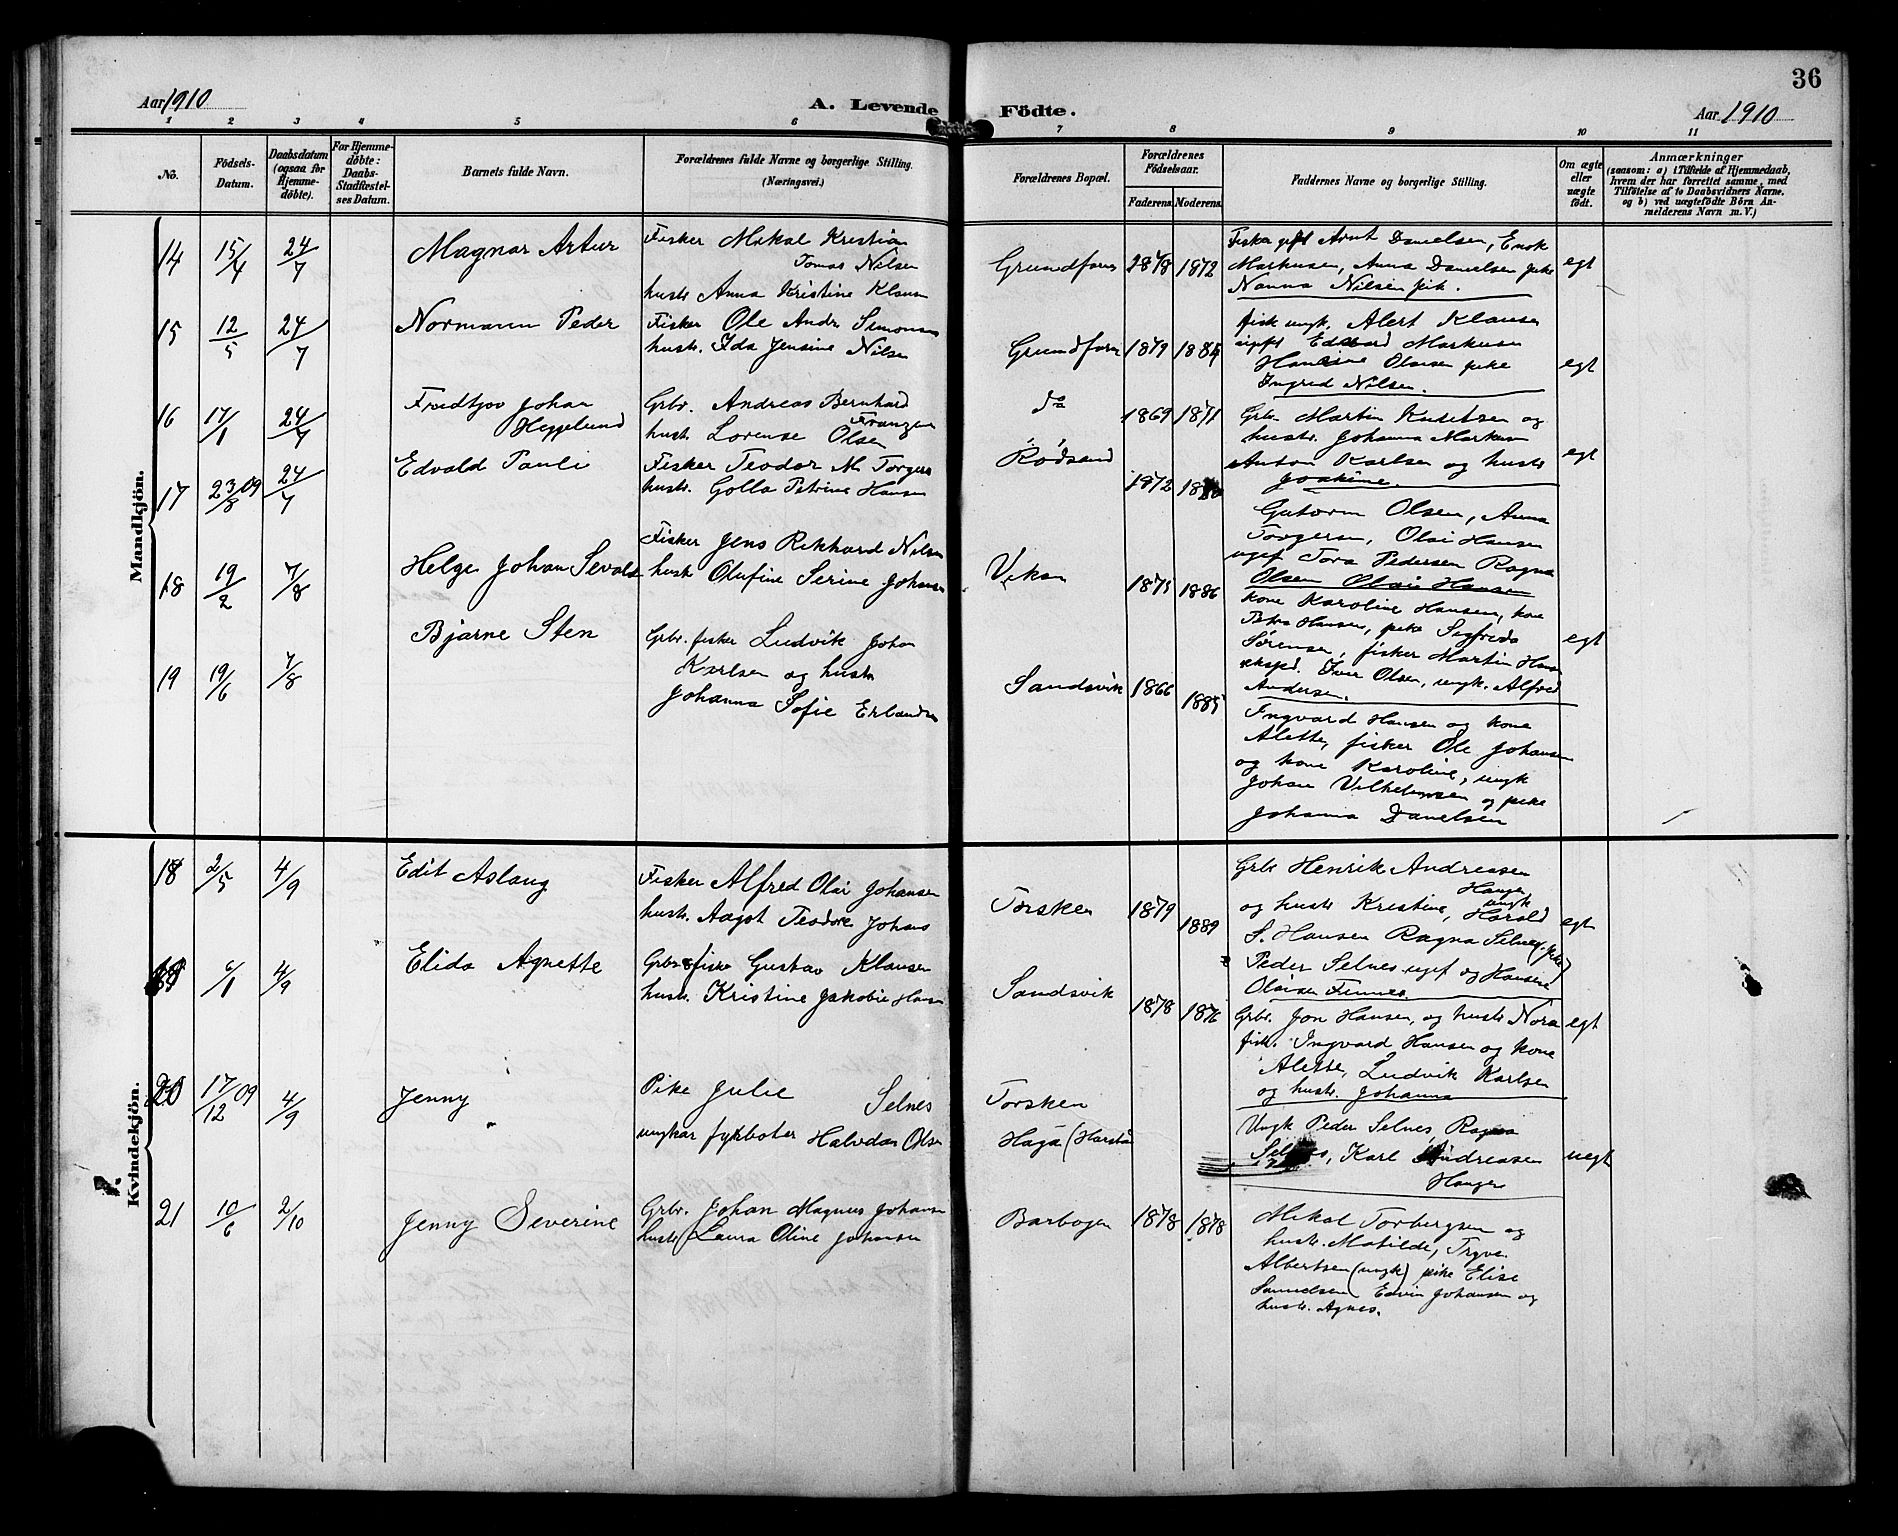 36
Aar 1910
A. Levende Födte.
Aar 1910
1 2 3 4 5 6 7 8 9 10 11
No.
Födsels-Datum.
Daabsdatum (ogsaa for Hjemme-döbte).
For Hjemme-döbte: Daabs-Stadfæstel-ses Datum.
Barnets fulde Navn.
Forældrenes fulde Navne og borgerlige Stilling.
(Næringsvei.)
Forældrenes Bopæl.
Forældrenes Födselsaar.
Faderens. Moderens.
Faddernes Navne og borgerlige Stilling.
Om ægte eller uægte födt.
Anmærkninger
(saasom: a) i Tilfælde af Hjemmedaab,
hvem der har forrettet samme, med
Tilföielse af to Daabsvidners Navne,
og b) ved uægtefödte Börn An-
melderens Navn m. V.)
Mandkjön.
14 15/4 24/7 Magnar Artur
Fisker Mikal Kristian
Tomas Nilsen
hustr Anna Kristine Klausen
Grundfarnes 1878 1872
Fisker gift Arnt Danielsen, Enok
Markusen, Anna Danielsen pike
Nanna Nilsen pik.
egt
15 12/5 24/7 Normann Peder
Fisker Ole Andr Simonsen
hustr. Ida Jensine Nilsen
Grundfarn 1879 1884
fisk ungk. Alert Klausen
gift Edvard Markusen
Hansine Olsen pike
Ingred Nilsen.
egt
16 17/1 24/7 Fredtjov Johan
Heggelund
Grbr. Andreas Bernhard
Franzen
hustr. Lorense Olsen
do 1869 1871
Grbr Martin Knutsen og
hustr. Johanna Markusen
Anton Karlsen og hustr
Joakime.
egt
17 23/8 09 24/7 Edvald Pauli
Fisker Teodor M. Torgers
hustr. Golla Petrine Hansen
Rødsand 1872
Gutorm Olsen, Anna
Torgersen, Olai Hansen
ugift Tora Pedersen Ragna
Olsen Olai Hansen
18 19/2 7/8 Helge Johan Sevald
Fisker Jens Rikhard Nilsen
hustr Olufine Serine Johansen
Vikan 1875 1886
kone Karoline Hansen, kone
Petra Hansen, pike Segfreda
Sörensen, fisker Martin Hansen
eksped. Iver Olsen, ungk. Alfred
Andersen.
egt
19 19/6 7/8 Bjarne Sten
Grbr. fisker Ludvik Johan
Karlsen og hustr
Johanna Sofie Erlandsen
Sandsvik 1866 1885
Ingvard Hansen og kone
Alette, fisker Ole Johansen
og kone Karoline, ungk
Johan Vilhelmsen og pike
Johanna Danielsen
Kvindekjön.
18 2/5 4/9 Edit Aslaug
Fisker Alfred Olai Johansen
hustr. Aagot Teodore Johans
Torsken 1879 1889
Grbr Henrik Andreasen
Haugen
og hustr Kristine, ungk Harald
S. Hansen Ragna Selnes (pike)
Peder Selnes ugift og Hansine
Olaisen Finnes.
egt
19 6/1 4/9 Elida Agnette
Grbr & fisker Gustav Klausen
hustr. Kristine Jakobie Hansen
Sandsvik 1878 1876
Grbr. Jon Hansen, og hustr Nora
fisk. Ingvard Hansen og kone
Alette, Ludvik Karlsen
og hustr. Johanna
egt
20 17/12 09 4/9 Jenny
Pike Julie Selnes
ungkar fyrbøter Halvdan Olsen
Torsken
Haga (Harstad
Ungk Peder Selnes, Ragna
Selnes, Karl Andreasen
Haugen
uegt
21 10/6 2/10 Jenny Severine
Grbr. Johan Magnus Johansen
hustr (Laura Oline Johansen
Barbogen 1878 1878
Mikal Torbergsen og
hustr. Matilde, Trygve
Albertsen (ungk) pike Elise
Samuelsen Edvin Johansen og
hustr. Agnes.